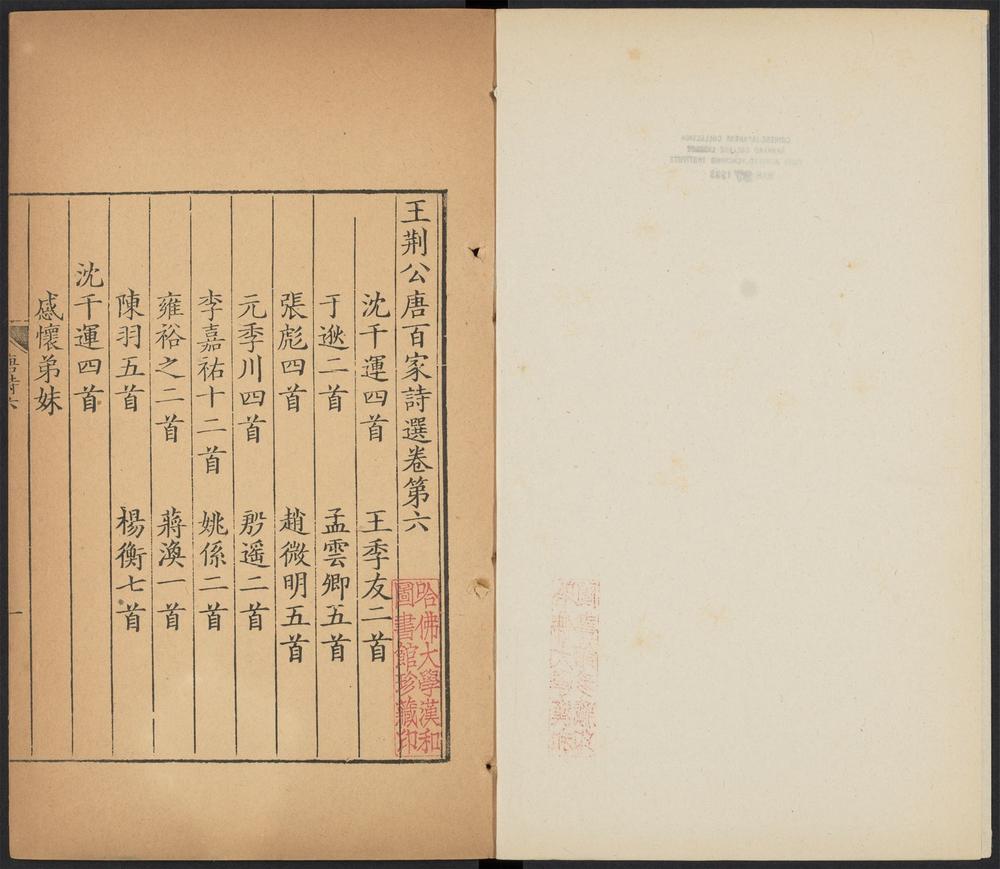 王荆公唐百家詩選卷第六
沈千運四首　王季友二首
于逖二首　孟雲卿五首
張彪四首　趙微明五首
元季川四首　郡遥二首
李嘉祐十二首　姚係二首
雍裕之二首　蔣渙一首
陳羽五首　楊衡七首
沈千運四首
感懷弟妹
唐詩六
一
哈佛大學漢和
圖書館珍藏印